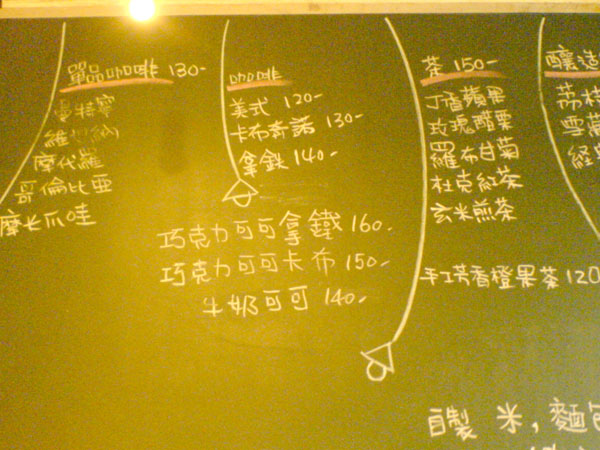 單品咖啡 130-
曼特寧
摩代羅
哥倫比亞
摩卡爪哇
咖啡
美式 120-
卡布奇諾 130-
拿鉄 140-
巧克力可可拿鐵 160-
巧克力可可卡布 150-
牛奶可可 140-
茶 150-
丁香蘋果
玫瑰醋栗
羅布甘菊
杜克紅茶
玄米煎茶
手工芳香橙果茶 120
釀造
荔枝
自製 米,麵包